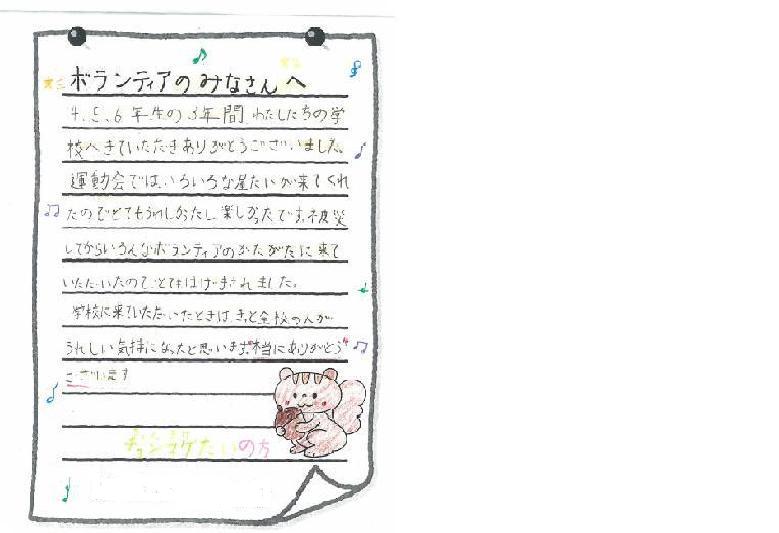 ボランティアのみなさんへ
4、5、6年生の3年間、わたしたちの学
校へきていただきありがとうございました。
運動会では、いろいろな屋たいが来てくれ
たのでとてもうれしかったし、楽しかったです。被災
してからいろんなボランティアのかたがたに来て
いただいたのでとてもはげまされました。
学校に来ていただいたときは、きっと全校の人が
うれしい気持になったと思います。本当にありがとう
ございます
チョンマゲたいの方